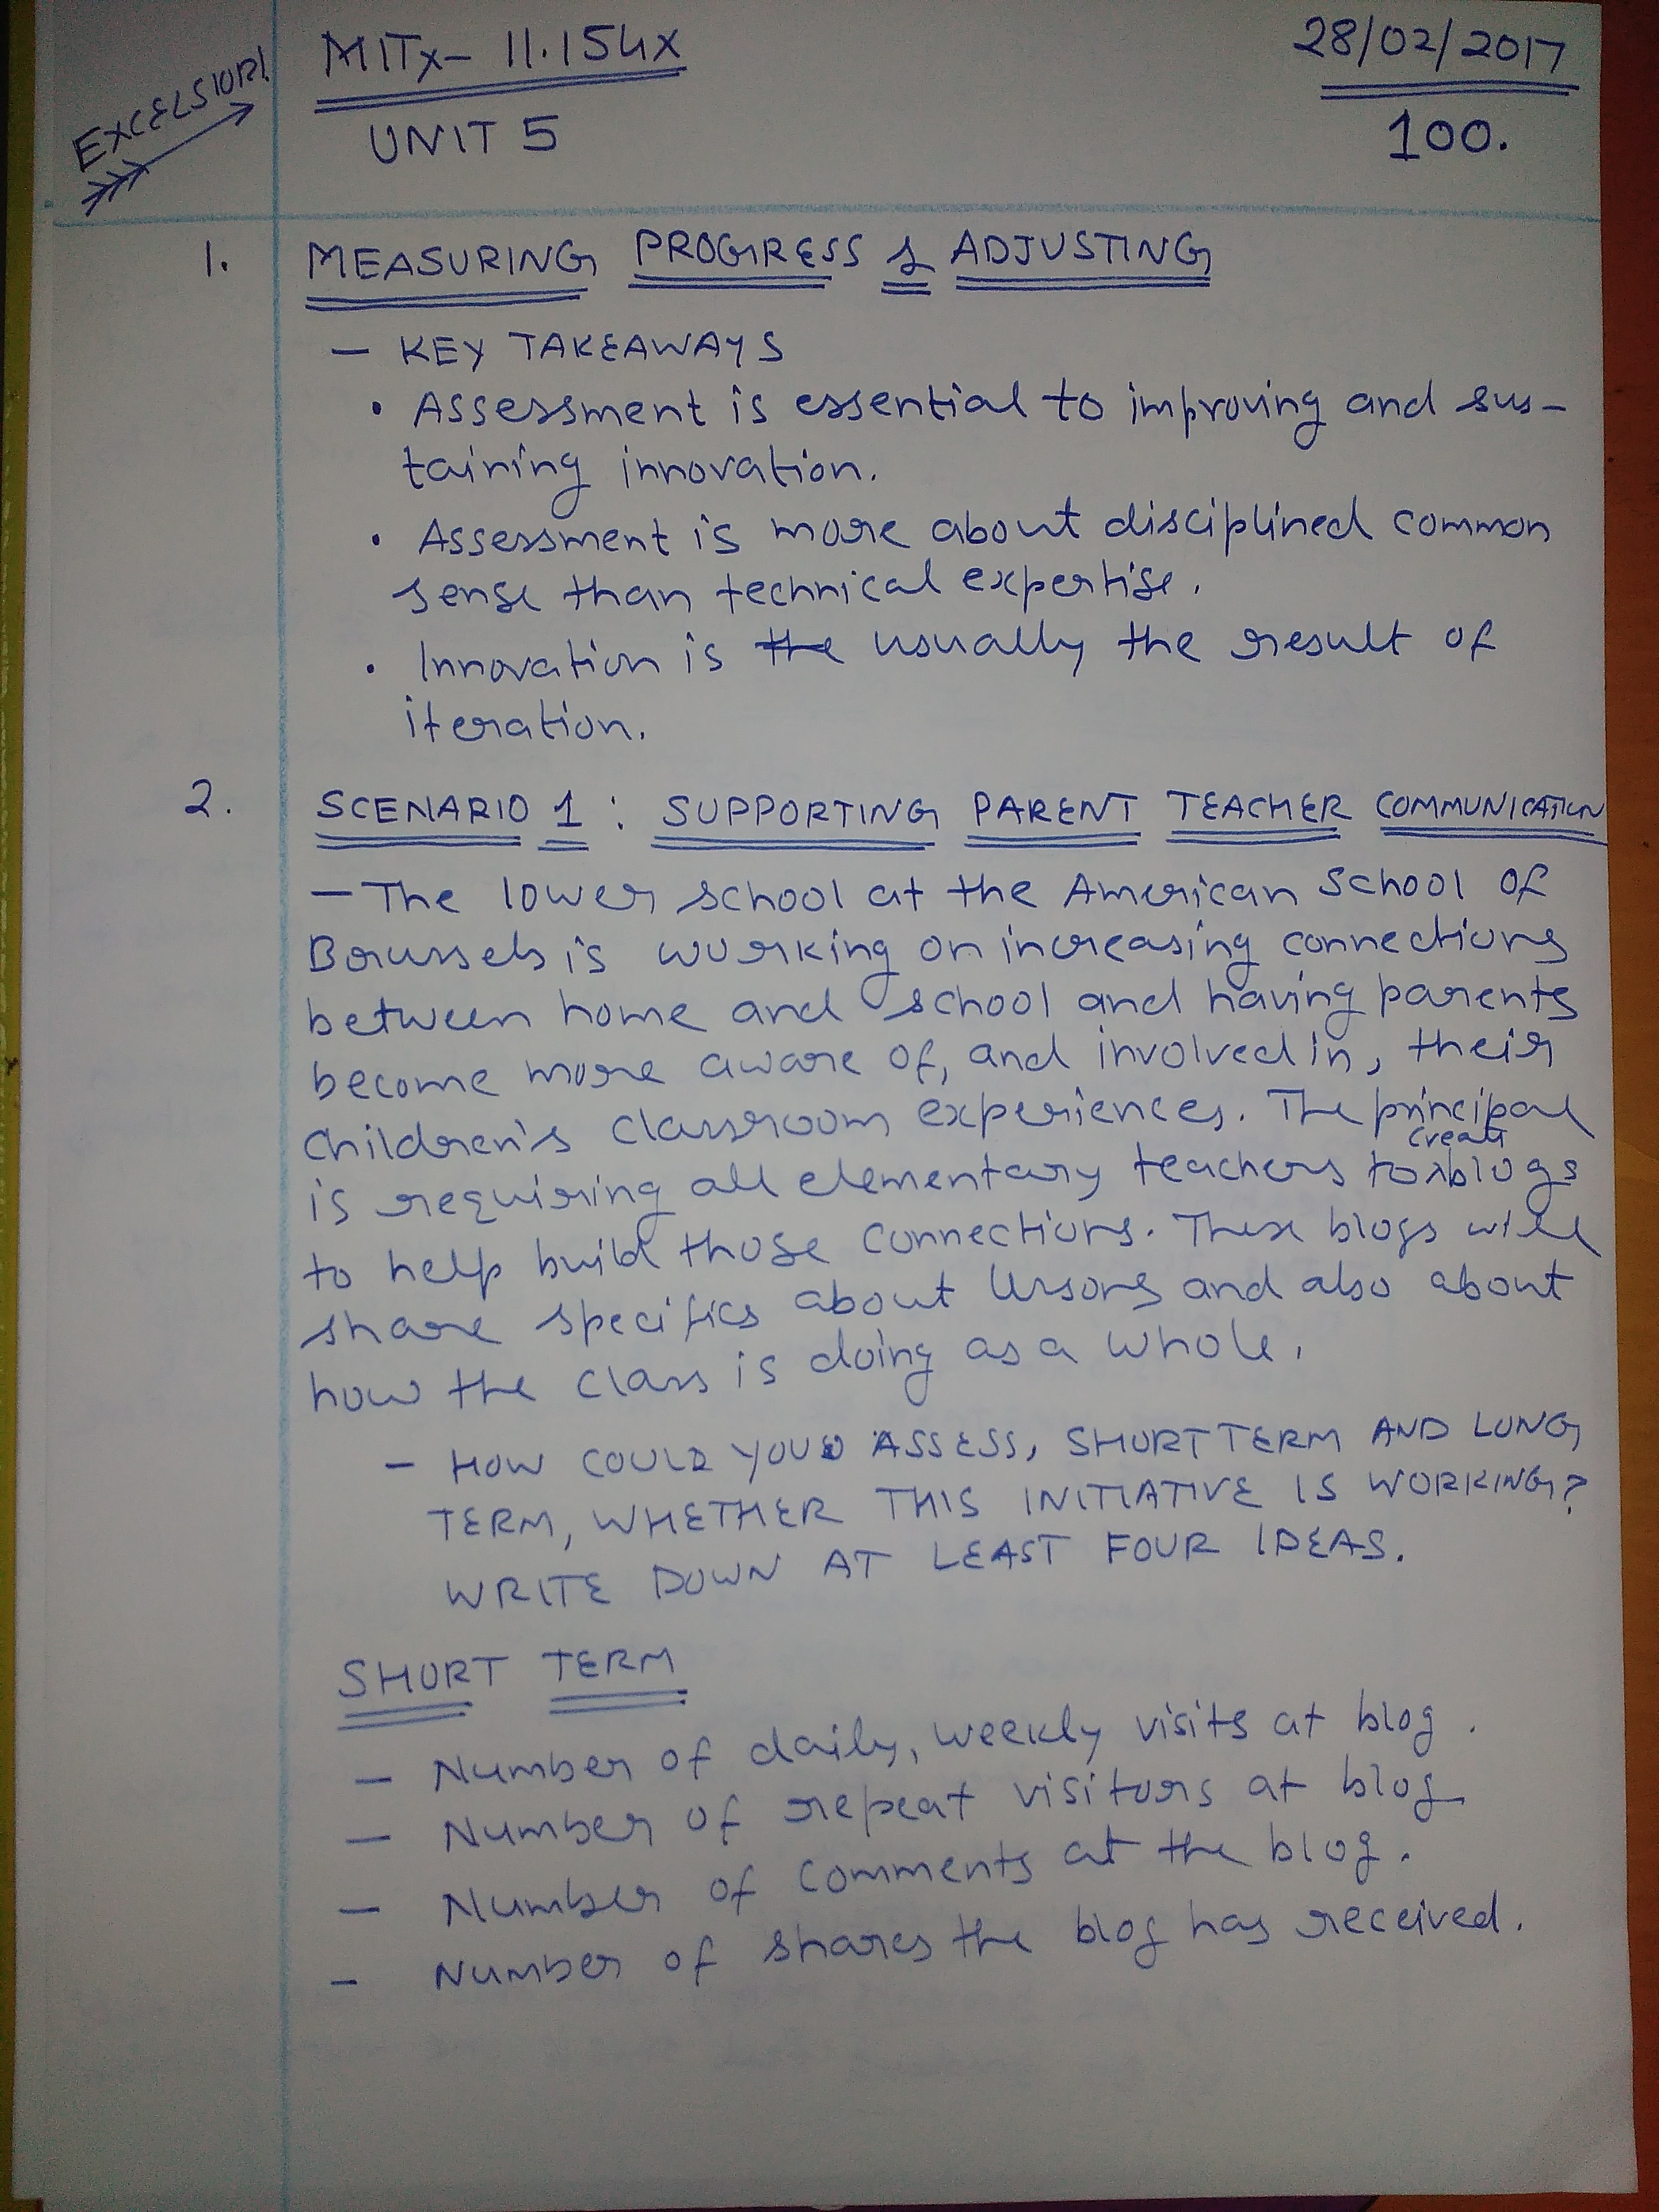 EXCELSIOR!
MITx- 11.154x
28/02/2017
UNIT 5
100.
1. MEASURING PROGRESS & ADJUSTING
- KEY TAKEAWAYS
• Assessment is essential to improving and sus-
taining innovation.
• Assessment is more about disciplined common
sense than technical expertise.
• Innovation is the usually the result of
iteration.
2. SCENARIO 1 : SUPPORTING PARENT TEACHER COMMUNICATION
- The lower school at the American School of
Brussels is working on increasing connections
between home and school and having parents
become more aware of, and involved in, their
children's classroom experiences. The principal
is requiring all elementary teachers to create blogs
to help build those connections. These blogs will
share specifics about lessons and also about
how the class is doing as a whole.
- HOW COULD YOU ASSESS, SHORT TERM AND LONG
TERM, WHETHER THIS INITIATIVE IS WORKING?
WRITE DOWN AT LEAST FOUR IDEAS.
SHORT TERM
- Number of daily, weekly visits at blog.
- Number of repeat visitors at blog
- Number of comments at the blog.
- Number of shares the blog has received.